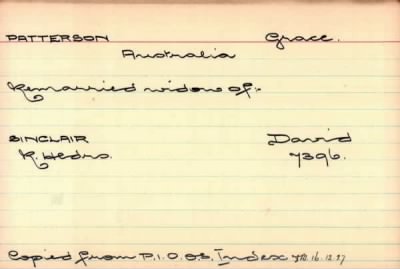 PATTERSON Grace.
Australia
Remarried widow of:-
SINCLAIR David
R. Hedrs. 7396.
Copied from P.I.O.&S. Index 16.12.37